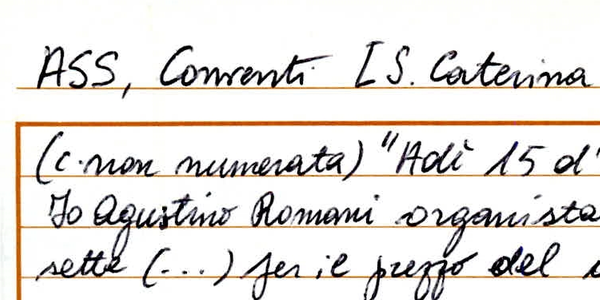 ASS, Conventi [S. Caterina
(c. non numerata) "Adì 15 d'
Jo Agustino Romani organista
sette (...) per il prezzo del